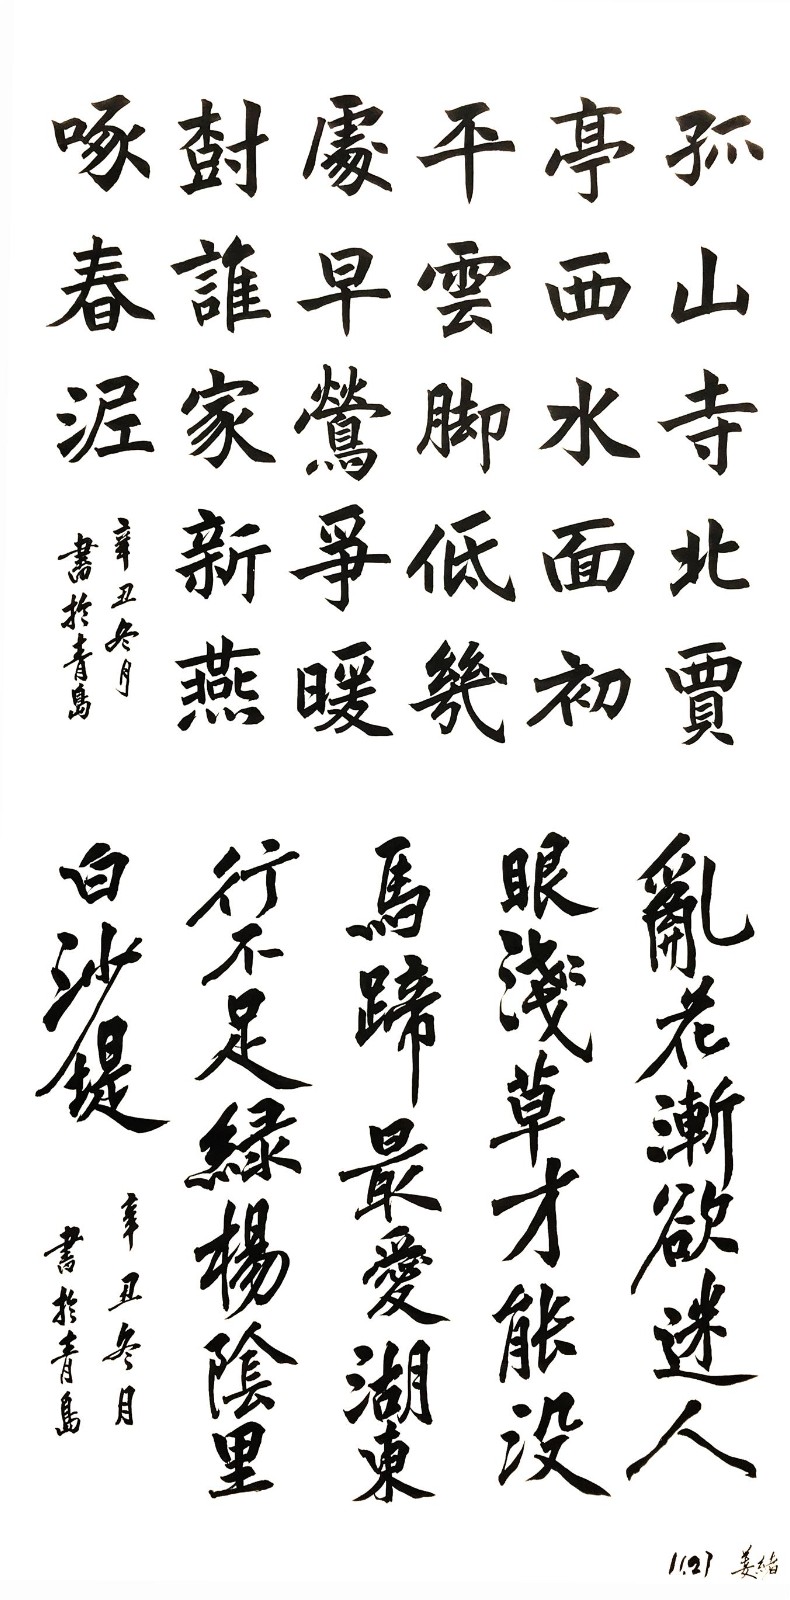 孤山寺北賈
亭西水面初
平雲脚低幾
處早鶯爭暖
樹誰家新燕
啄春泥
辛丑冬月
書於青島
亂花漸欲迷人
眼淺草才能没
馬蹄最愛湖東
行不足緑楊陰里
白沙堤
辛丑冬月
書於青島
11.27